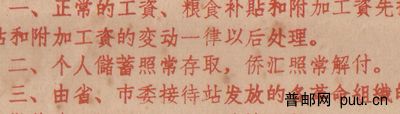 一、正常的工資、粮食补貼和附加工資先
和附加工資的变动一律以后处理。
二、个人儲蓄照常存取，侨汇照常解付。
三、由省、市委接待站发放的各革命組織的
普邮网 puu.cn